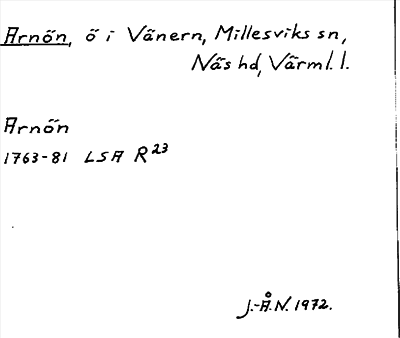 Arnön, ö i Vänern, Millesviks sn,
Näs hd, Värml. l.
Arnön
1763-81 LSA R23
J.-Å.N. 1972.